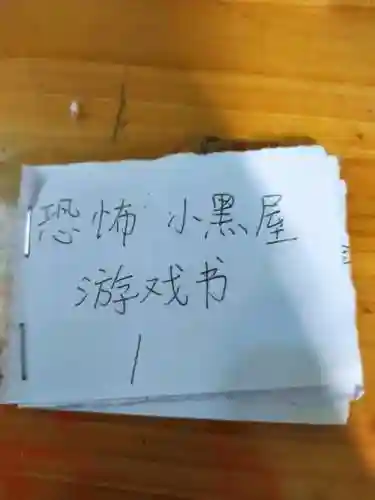 恐怖 小黑屋
游戏书
1